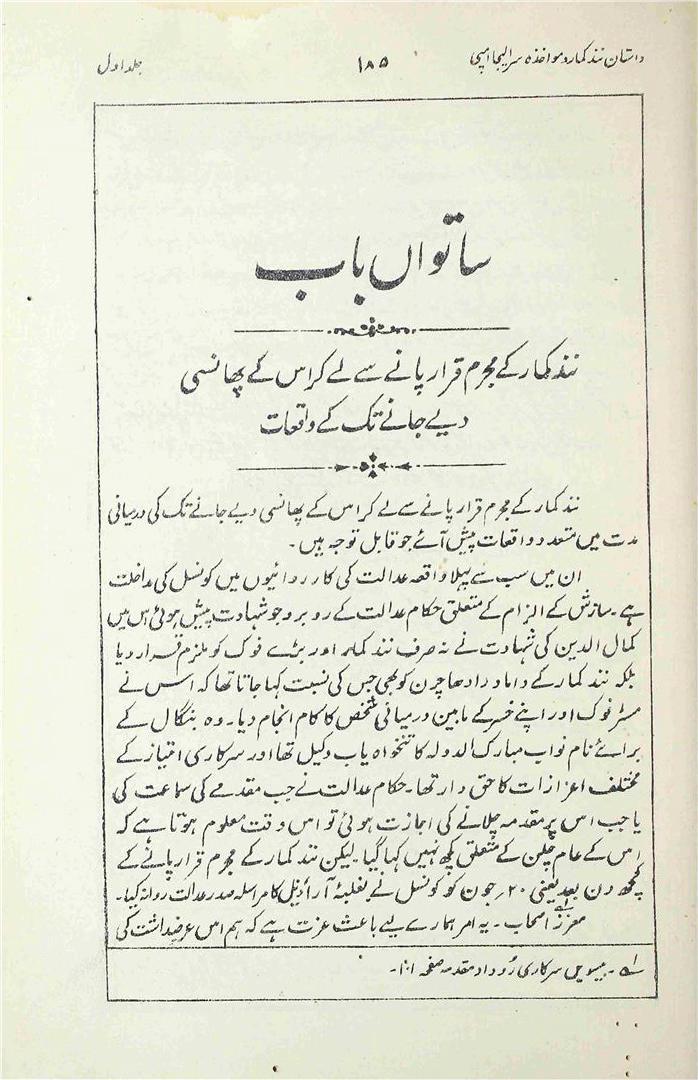 داستان نند کمار و مواخذہ سر الیجا امپی ۱۸۵ جلد اول
ساتواں باب
نند کمار کے مجرم قرار پانے سے لے کر اس کے پھانسی
دیے جانے تک کے واقعات
نند کمار کے مجرم قرار پانے سے لے کر اس کے پھانسی دیے جانے تک کی درمیانی
مدت میں متعدد واقعات پیش آئے جو قابل توجہ ہیں۔
ان میں سب سے پہلا واقعہ عدالت کی کارروائیوں میں کونسل کی مداخلت
ہے۔ سازش کے الزام کے متعلق حکام عدالت کے روبرو جو شہادت پیش ہوئی اس میں
کمال الدین کی شہادت نے نہ صرف نند کمار اور بڑے فوک کو ملزم قرار دیا
بلکہ نند کمار کے داماد رادھا چرن کو بھی جس کی نسبت کہا جاتا تھا کہ اس نے
مسٹر فوک اور اپنے خسر کے مابین درمیانی شخص کا کام انجام دیا۔ وہ بنگال کے
برائے نام نواب مبارک الدولہ کا تنخواہ یاب وکیل تھا اور سرکاری امتیاز کے
مختلف اعزازات کا حق دار تھا۔ حکام عدالت نے جب مقدمے کی سماعت کی
یا جب اس پر مقدمہ چلانے کی اجازت ہوئی تو اس وقت معلوم ہوتا ہے کہ
اس کے عام چلن کے متعلق کچھ نہیں کہا گیا۔ لیکن نند کمار کے مجرم قرار پانے کے
کچھ دن بعد یعنی ۲۰؍ جون کو کونسل نے بغلبۂ آرا ذیل کا مراسلہ صدر عدالت روانہ کیا۔
معزز اصحاب۔ یہ امر ہمارے لیے باعث عزت ہے کہ ہم اس عرضداشت کی
لہ۔ بیسویں سرکاری رُوداد مقدمہ صفحہ ۱۰۱۔